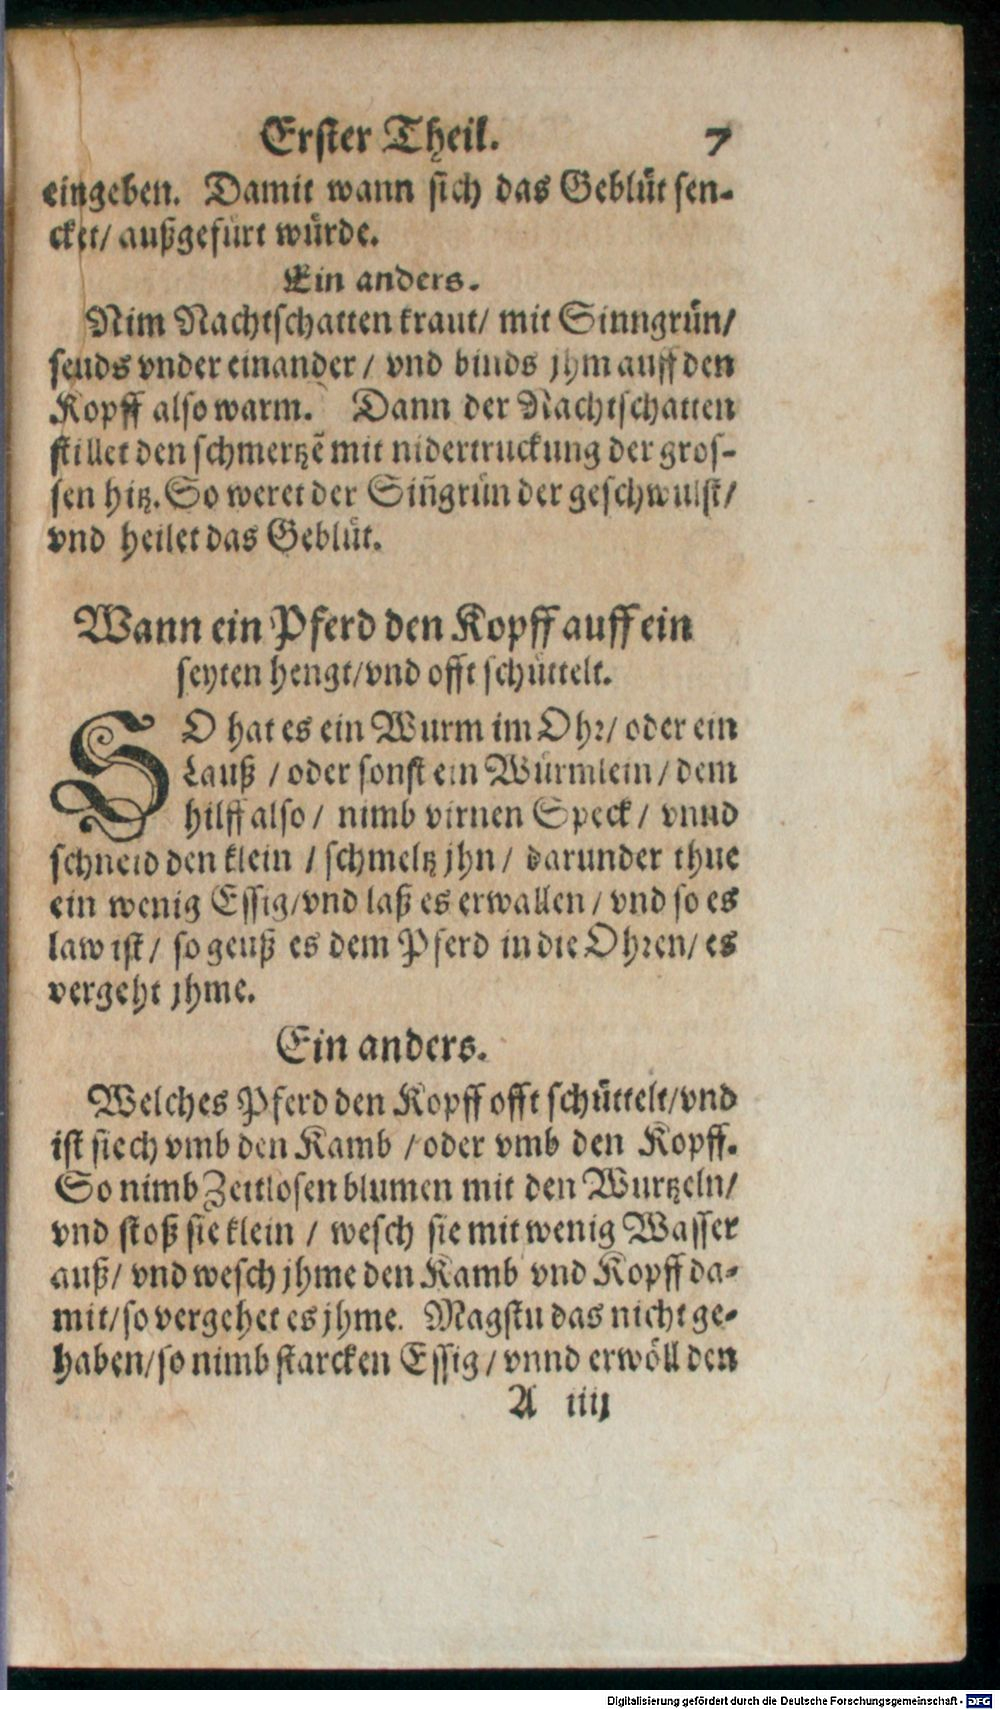 Erster Theil. 7
eingeben. Damit wann sich das Geblüt sen-
cket/ außgefürt würde.
Ein anders.
Nim Nachtschatten kraut/ mit Sinngrün/
seuds vnder einander / vnd binds jhm auff den
Kopff also warm. Dann der Nachtschatten
stillet den schmertzẽ mit nidertruckung der gros-
sen hitz. So weret der Siñgrün der geschwulst/
vnd heilet das Geblüt.
Wann ein Pferd den Kopff auff ein
seyten hengt/vnd offt schüttelt.
SO hat es ein Wurm im Ohr/ oder ein
Lauß / oder sonst ein Würmlein / dem
hilff also / nimb virnen Speck / vnnd
schneid den klein / schmeltz jhn / darunder thue
ein wenig Essig/vnd laß es erwallen / vnd so es
law ist / so geuß es dem Pferd in die Ohren/ es
vergeht jhme.
Ein anders.
Welches Pferd den Kopff offt schüttelt/vnd
ist siech vmb den Kamb / oder vmb den Kopff.
So nimb Zeitlosen blumen mit den Wurtzeln/
vnd stoß sie klein / wesch sie mit wenig Wasser
auß/ vnd wesch jhme den Kamb vnd Kopff da-
mit/so vergehet es jhme. Magstu das nicht ge-
haben/so nimb starcken Essig / vnnd erwöll den
A iiij
Digitalisierung gefördert durch die Deutsche Forschungsgemeinschaft - DFG